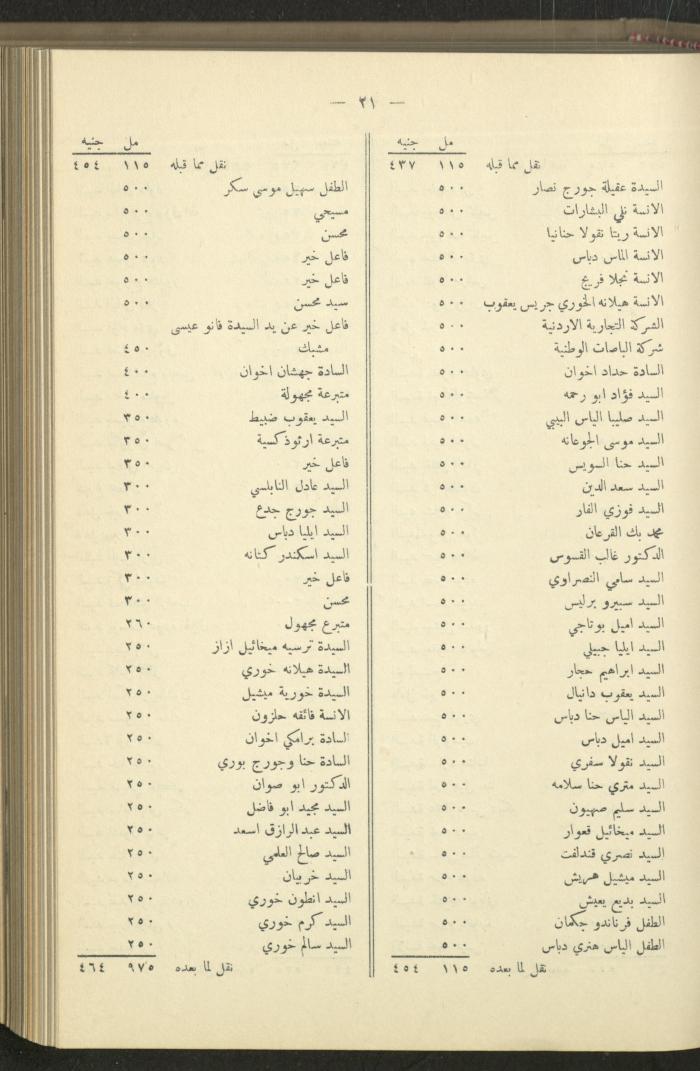 — ٢١ —
مل جنيه
نقل مما قبله ١١٥ ٤٣٧
السيدة عقيلة جورج نصار ٥٠٠
الانسة نلي البشارات ٥٠٠
الانسة ريتا نقولا حنانيا ٥٠٠
الانسة الماس دباس ٥٠٠
الانسة نجلا فريج ٥٠٠
الانسة هيلانه الخوري جريس يعقوب ٥٠٠
الشركة التجارية الاردنية ٥٠٠
شركة الباصات الوطنية ٥٠٠
السادة حداد اخوان ٥٠٠
السيد فؤاد ابو رحمه ٥٠٠
السيد صليبا الياس البيبي ٥٠٠
السيد موسى الجوعانه ٥٠٠
السيد حنا السويس ٥٠٠
السيد سعد الدين ٥٠٠
السيد فوزي الفار ٥٠٠
محمد بك القرعان ٥٠٠
الدكتور غالب القسوس ٥٠٠
السيد سامي النصراوي ٥٠٠
السيد سبيرو برليس ٥٠٠
السيد اميل بوتاجي ٥٠٠
السيد ايليا جبيلي ٥٠٠
السيد ابراهيم حجار ٥٠٠
السيد يعقوب دانيال ٥٠٠
السيد الياس حنا دباس ٥٠٠
السيد اميل دباس ٥٠٠
السيد نقولا سفري ٥٠٠
السيد متري حنا سلامه ٥٠٠
السيد سليم صهيون ٥٠٠
السيد ميخائيل قعوار ٥٠٠
السيد نصري قندلفت ٥٠٠
السيد ميشيل هريش ٥٠٠
السيد بديع يعيش ٥٠٠
الطفل فرناندو جكمان ٥٠٠
الطفل الياس هنري دباس ٥٠٠
نقل لما بعده ١١٥ ٤٥٤
مل جنيه
نقل مما قبله ١١٥ ٤٥٤
الطفل سهيل موسى سكر ٥٠٠
مسيحي ٥٠٠
محسن ٥٠٠
فاعل خير ٥٠٠
فاعل خير ٥٠٠
سيد محسن ٥٠٠
فاعل خير عن يد السيدة فانو عيسى
مشبك ٤٥٠
السادة جهشان اخوان ٤٠٠
متبرعة مجهولة ٤٠٠
السيد يعقوب ضبيط ٣٥٠
متبرعة ارثوذكسية ٣٥٠
فاعل خير ٣٥٠
السيد عادل النابلسي ٣٠٠
السيد جورج جدع ٣٠٠
السيد ايليا دباس ٣٠٠
السيد اسكندر كتانه ٣٠٠
فاعل خير ٣٠٠
محسن ٣٠٠
متبرع مجهول ٢٦٠
السيدة ترسيه ميخائيل ازاز ٢٥٠
السيدة هيلانه خوري ٢٥٠
السيدة خورية ميشيل ٢٥٠
الانسة فائقه حلزون ٢٥٠
السادة برامكي اخوان ٢٥٠
السادة حنا وجورج بوري ٢٥٠
الدكتور ابو صوان ٢٥٠
السيد مجيد ابو فاضل ٢٥٠
السيد عبد الرازق اسعد ٢٥٠
السيد صالح العلمي ٢٥٠
السيد خربيان ٢٥٠
السيد انطون خوري ٢٥٠
السيد كرم خوري ٢٥٠
السيد سالم خوري ٢٥٠
نقل لما بعده ٩٧٥ ٤٦٤